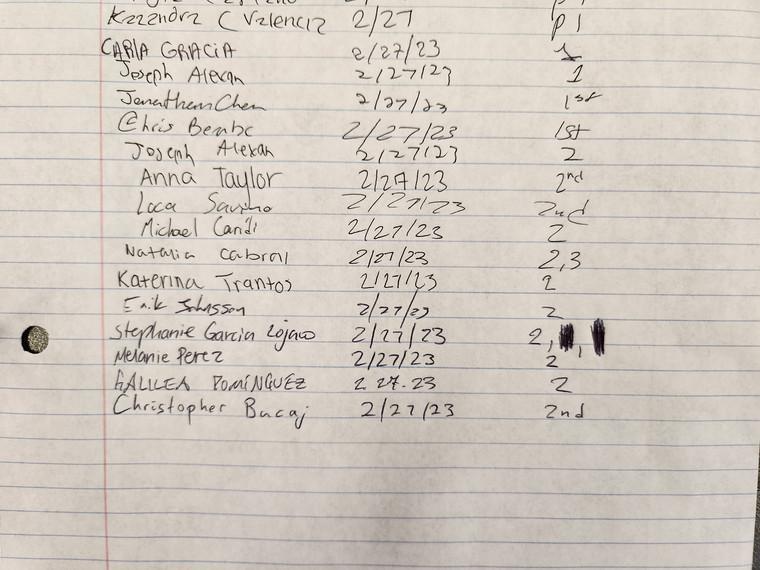 Kazandra C Valencia 2/27 P 1
CARLA GRACIA 2/27/23 1
Joseph Alexan 2/27/23 1
Jonathan Chen 2/27/23 1st
Chris 2/27/23 1st
Joseph Alexan 2/27/23 2
Anna Taylor 2/27/23 2nd
Luca Savino 2/27/23 2nd
Michael 2/27/23 2
Natalia Cabral 2/27/23 2,3
Katerina Trantos 2/27/23 2
Erik Johnsson 2/27/23 2
Stephanie Garcia Lojano 2/27/23 2,
Melanie Perez 2/27/23 2
GALILEA DOMÍNGUEZ 2 27.23 2
Christopher Bucaj 2/27/23 2nd